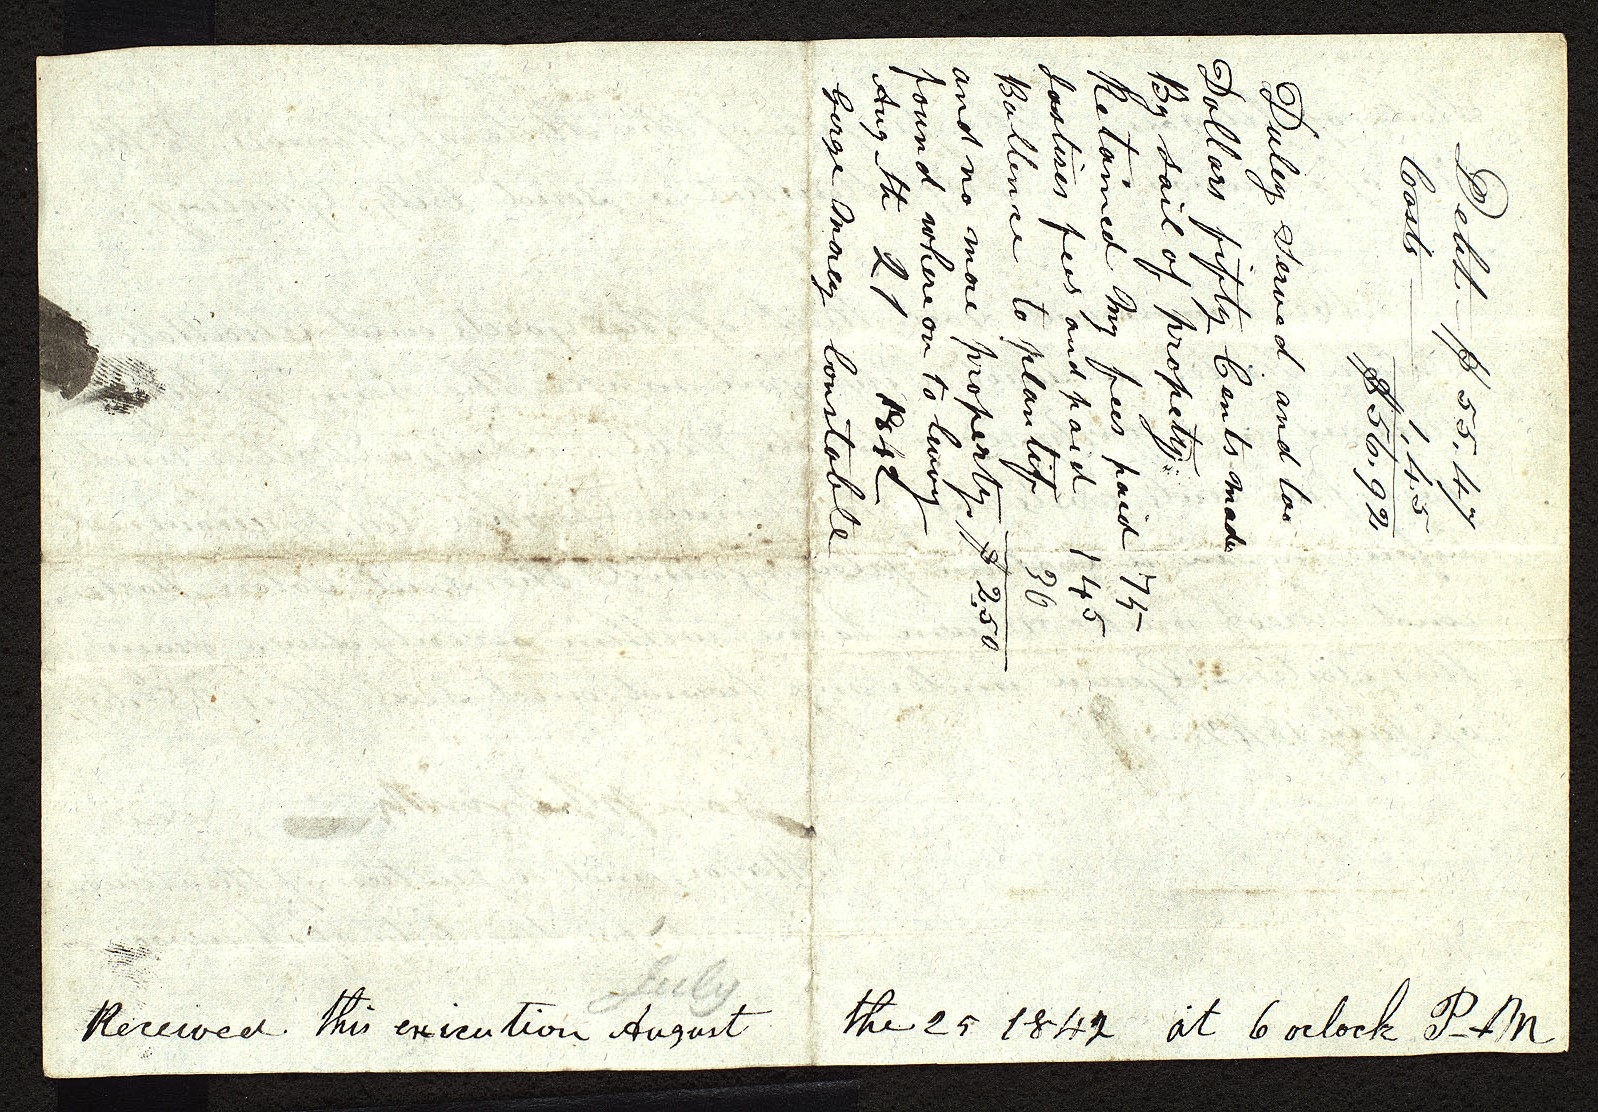 Debt - $ 55.47
Costs — 1.45
$ 56.92
Duley served and too
Dollars fifty Cents made
By sail of propety
Retained My fees paid 75
Jostises fees and paid 145
Ballence to plantiff 30
and no more property $ 2.50
found where on to levvy
Aug th 21 1842
Gorge Morey Constable
July
Received this exicution August the 25 1842 at 6 oclock P-M